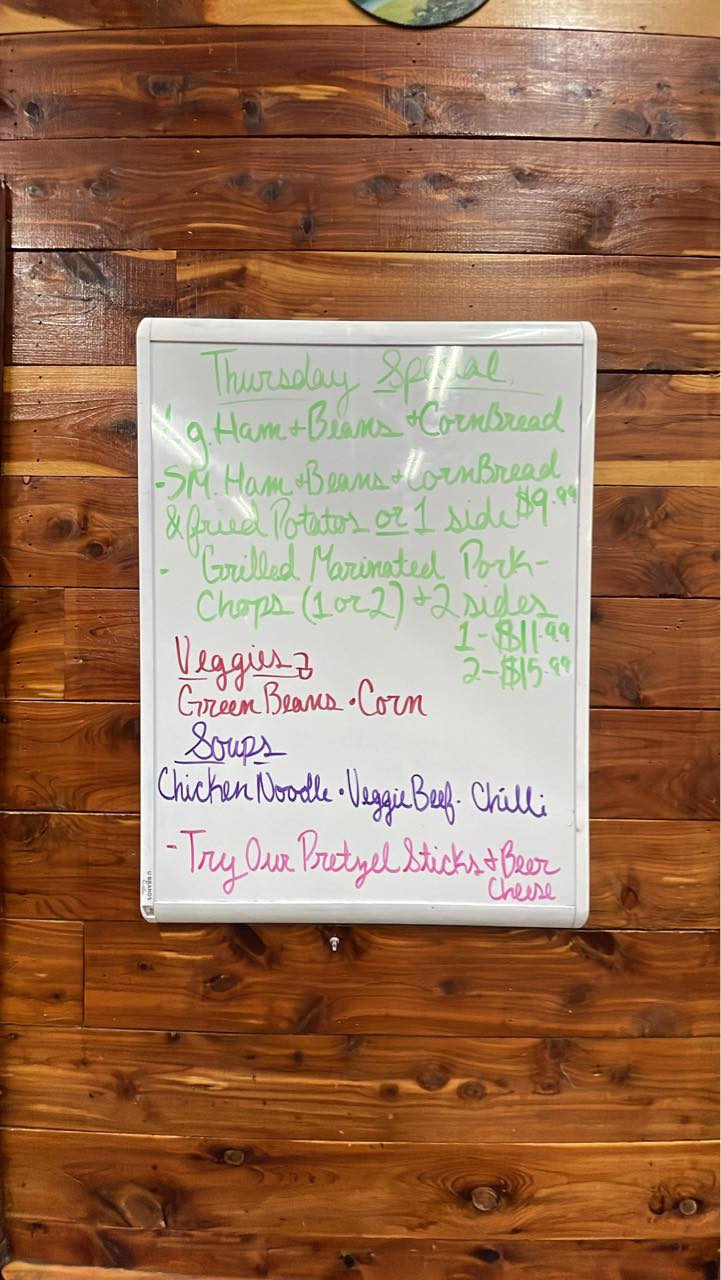 Thursday Special
Lg. Ham + Beans + CornBread
- SM. Ham + Beans + CornBread
& fried Potatos or 1 side $9.99
- Grilled Marinated Pork-
Chops (1 or 2) + 2 sides
1 - $11.99
2 - $15.99
Veggies
Green Beans • Corn
Soups
Chicken Noodle • Veggie Beef • Chilli
- Try Our Pretzel Sticks + Beer
Cheese
U BRANDS